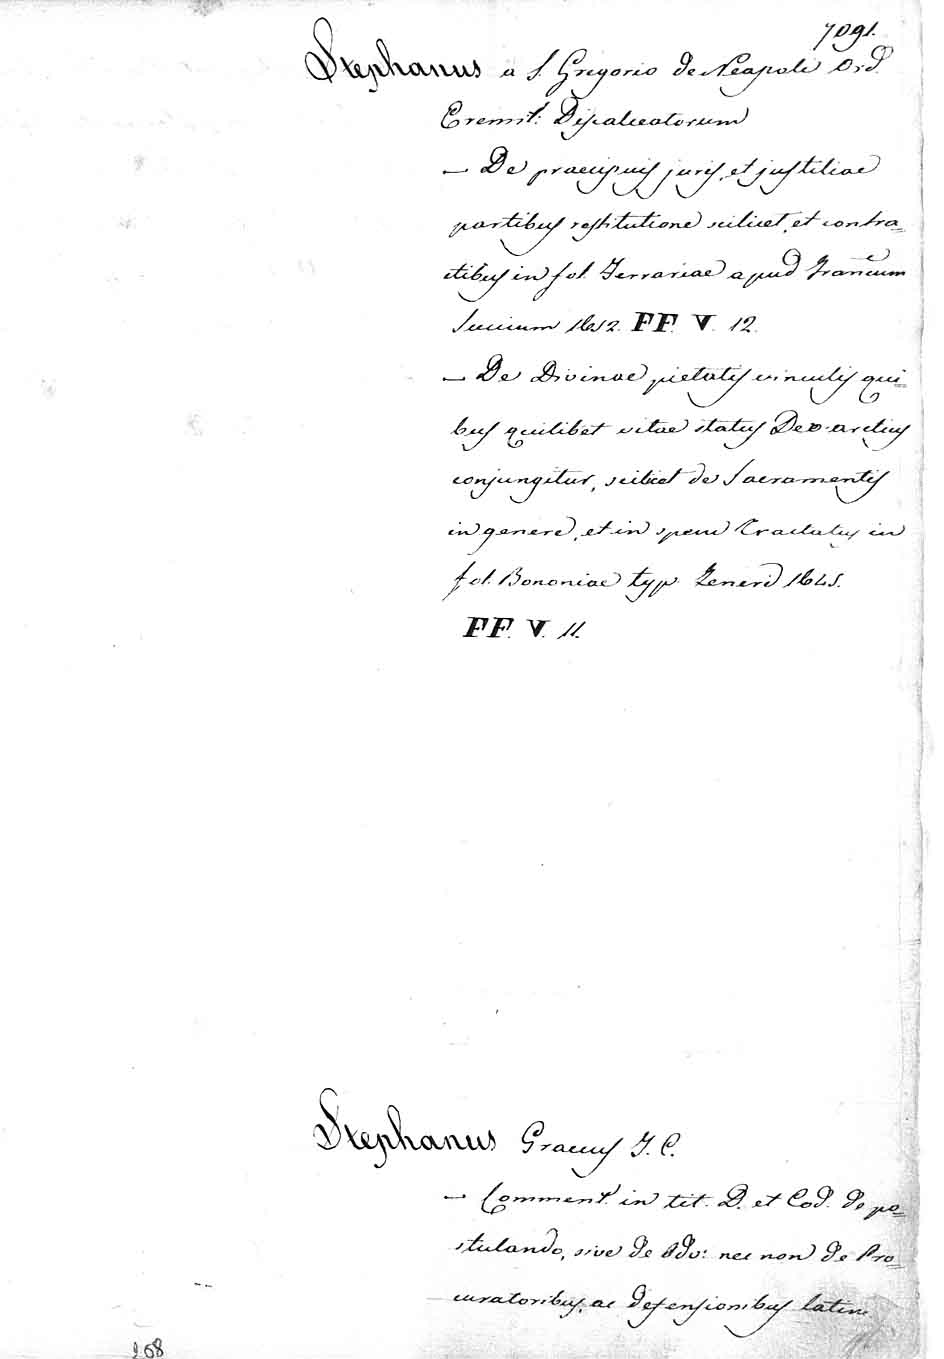 7091.
Stephanus a S. Grigorio de Neapoli Ord.
Eremit: Discalceatorum
— De praecipuis juris, et justitiae
partibus restitutione scilicet, et contra=
ctibus in fol. Ferrariae apud Francum
Succium 1652. FF. V. 12.
— De Divinae pietatis vinculis qui=
bus quilibet vitae status Deo arctius
conjungitur, scilicet de Sacramentis
in genere, et in specie Tractatus in
fol. Bononiae typ. Zeneri 1645.
FF. V. 11.
Stephanus Graecus J. C.
— Comment. in tit. D. et Cod. de po=
stulando, sive de Adv: nec non de Pro=
curatoribus, ac defensionibus latine
268